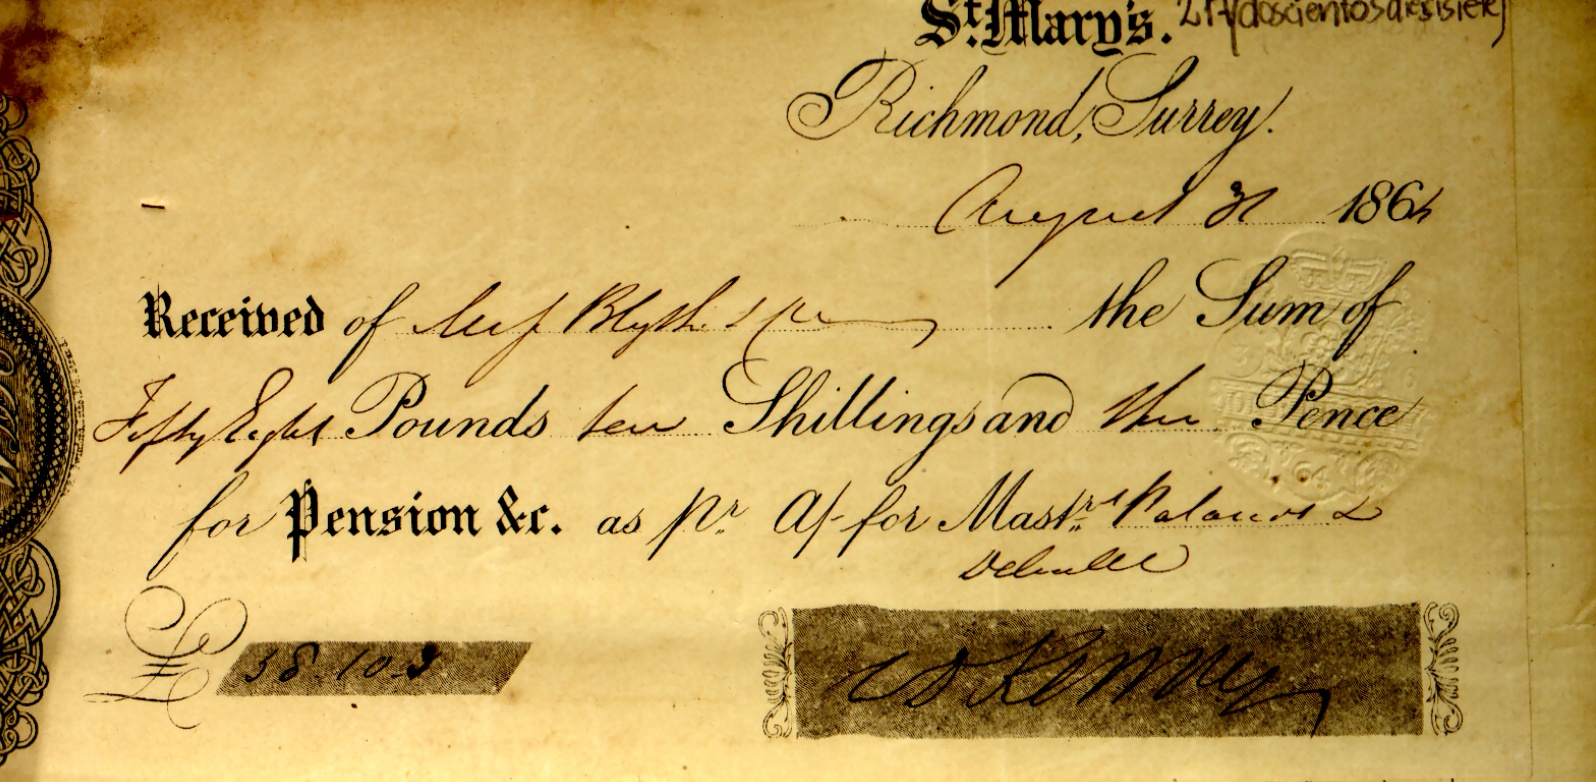 St. Mary's. 217 (doscientos diesisiete)
Richmond, Surrey.
August 31 1864
Received of Messrs Blyth the Sum of
Fifty Eight Pounds ten Shillings and three Pence
for Pension &c. as pr. A/- for Mastrs.
£ 58.10.3
Kenney